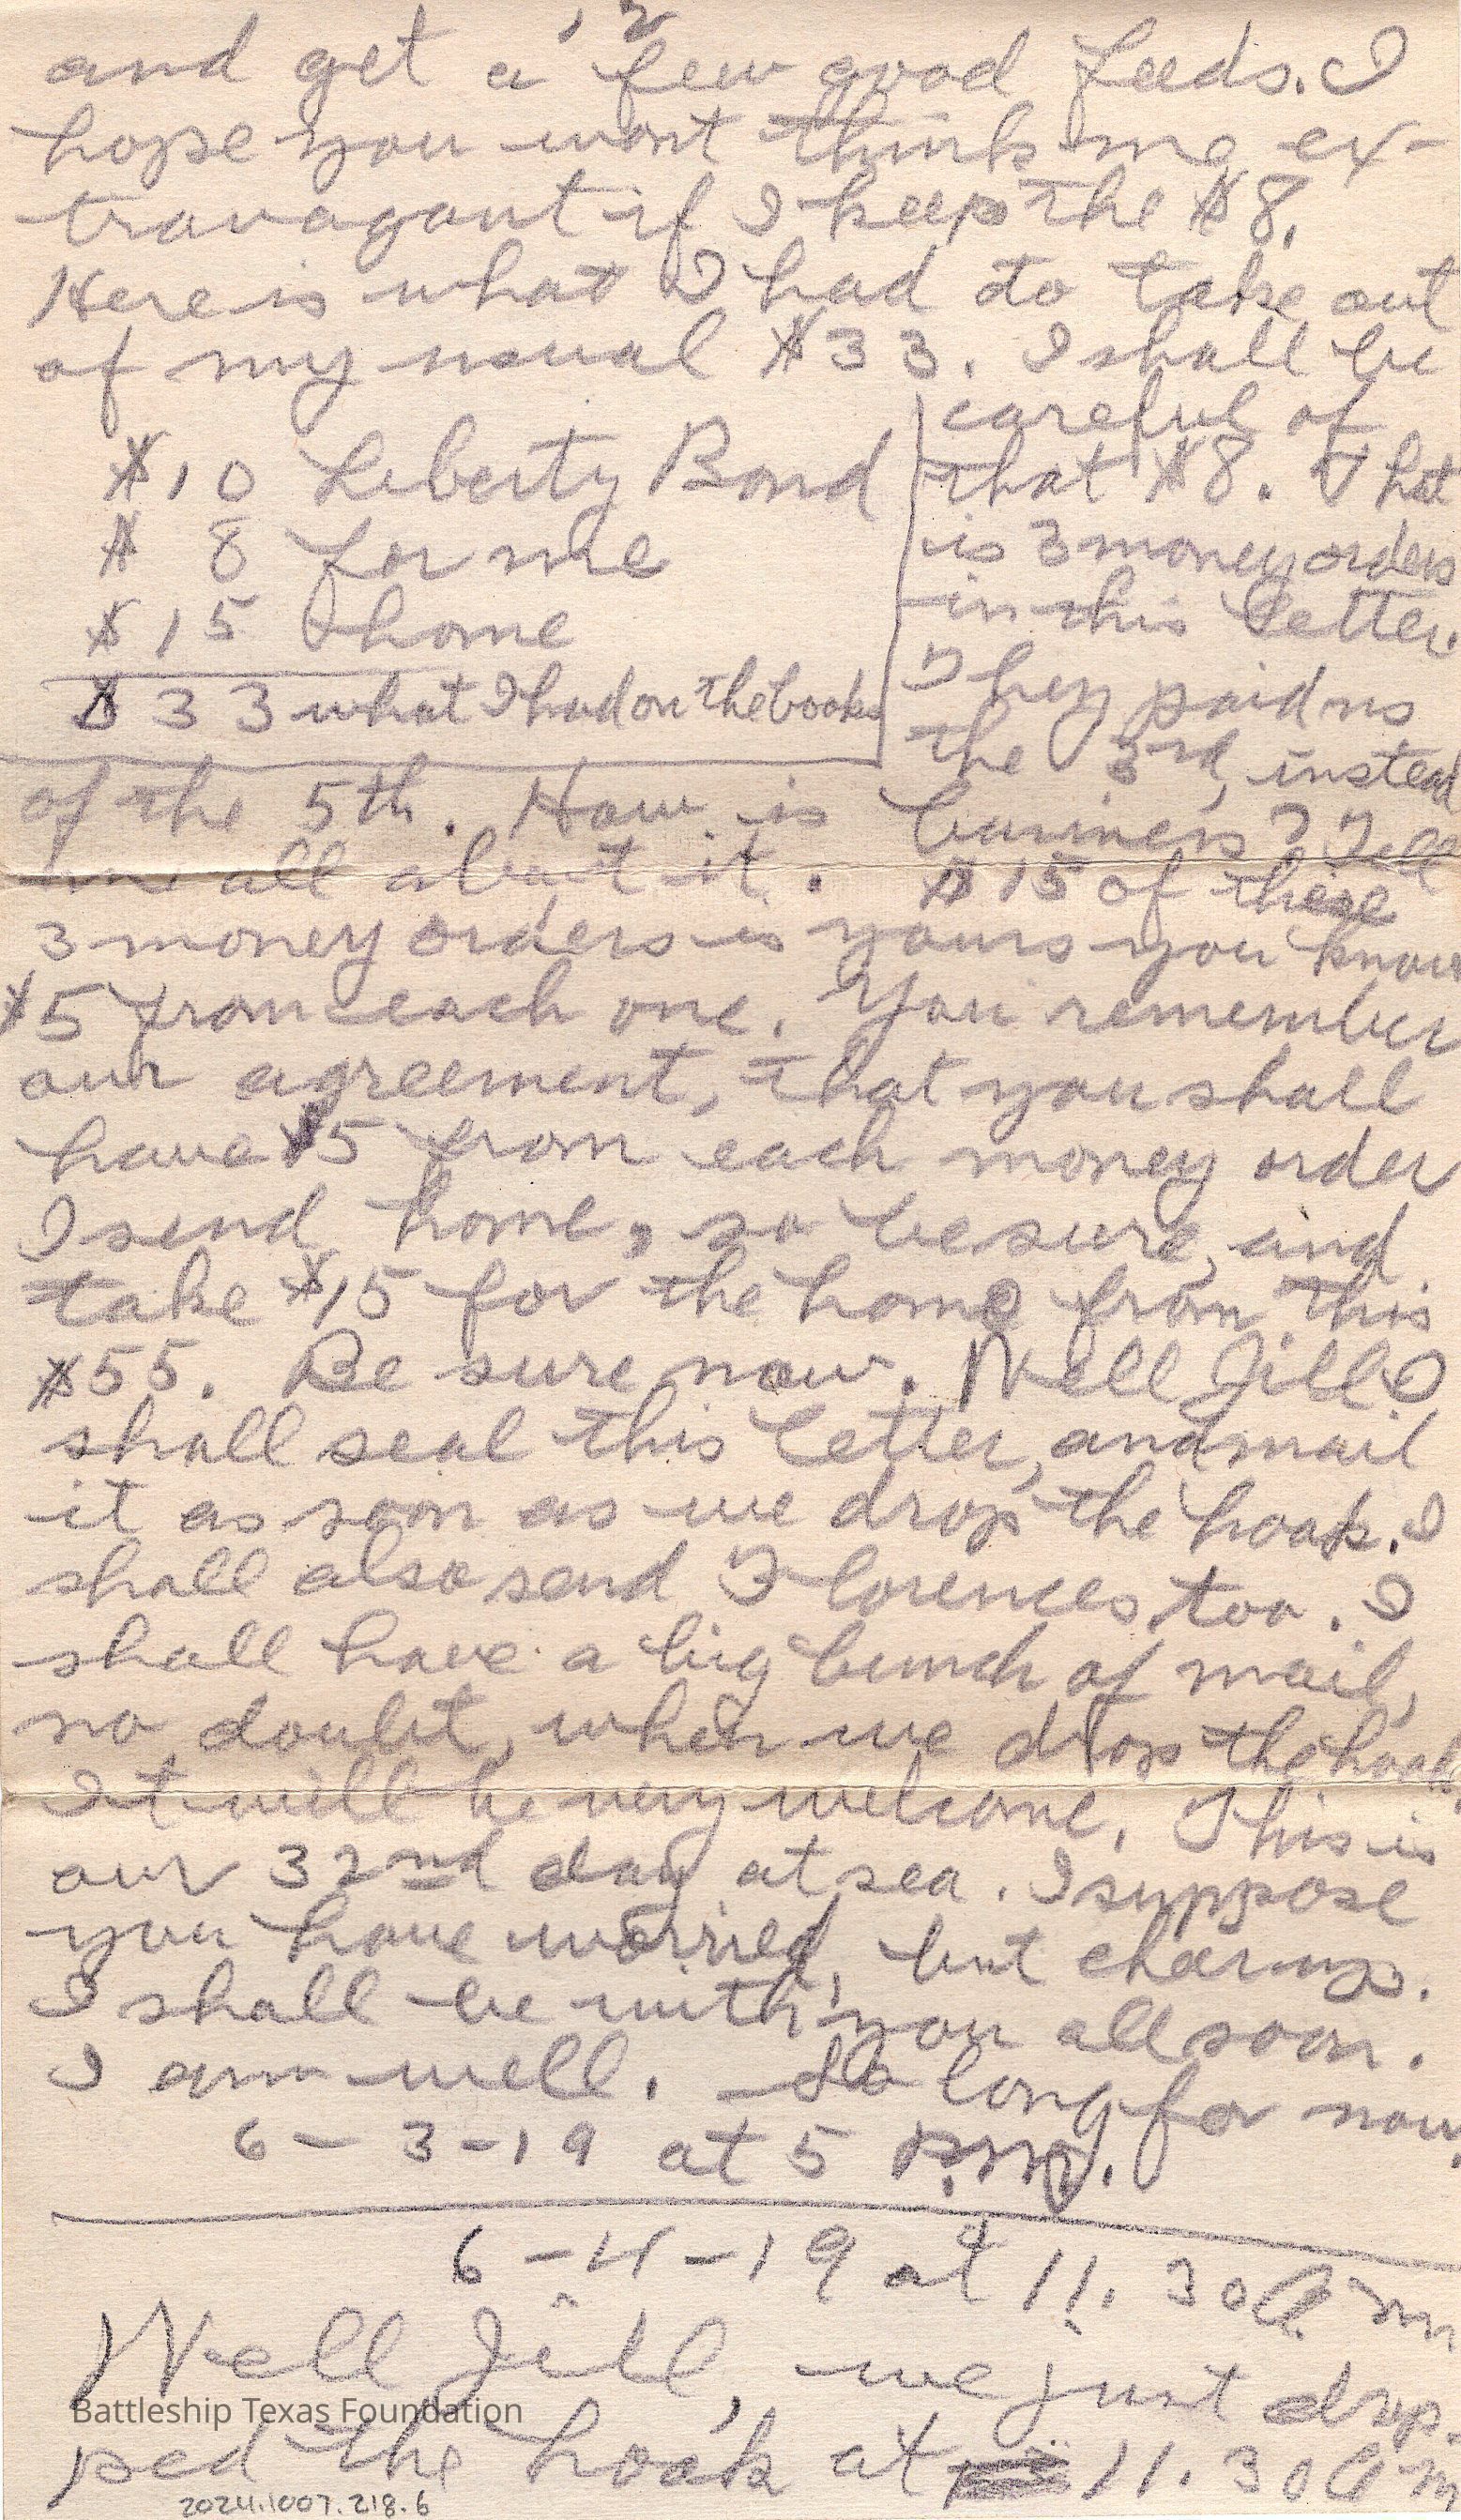 12
and get a few good feeds. I
hope you wont think me ex-
travagant if I keep the $8.
Here is what I had to take out
of my usual $33. I shall be
careful of
that $8. That
is 3 money orders
in this letter.
They paid us
the 3rd, instead
$10 Liberty Bond
$ 8 for me
$15 home
$33 what I had on the books
of the 5th. How is business? Tell
me all about it. $15 of these
3 money orders is yours you know
$5 from each one. You remember
our agreement, that you shall
have $5 from each money order
I send home, so be sure, and
take $15 for the home from this
$55. Be sure now. Well Jill I
shall seal this letter, and mail
it as soon as we drop the hook. I
shall also send Florences too. I
shall have a big bunch of mail,
no doubt, when we drop the hook.
It will be very welcome. This is
our 32nd day at sea. I suppose
you have worried, but cheer up.
I shall be with you all soon.
I am well. So long for now.
6-3-19 at 5 P.M.
6-4-19 at 11.30 A m
Well Jill, we just drop-
Battleship Texas Foundation
ped the hook at 11.30 A m
2024.1007.218.6